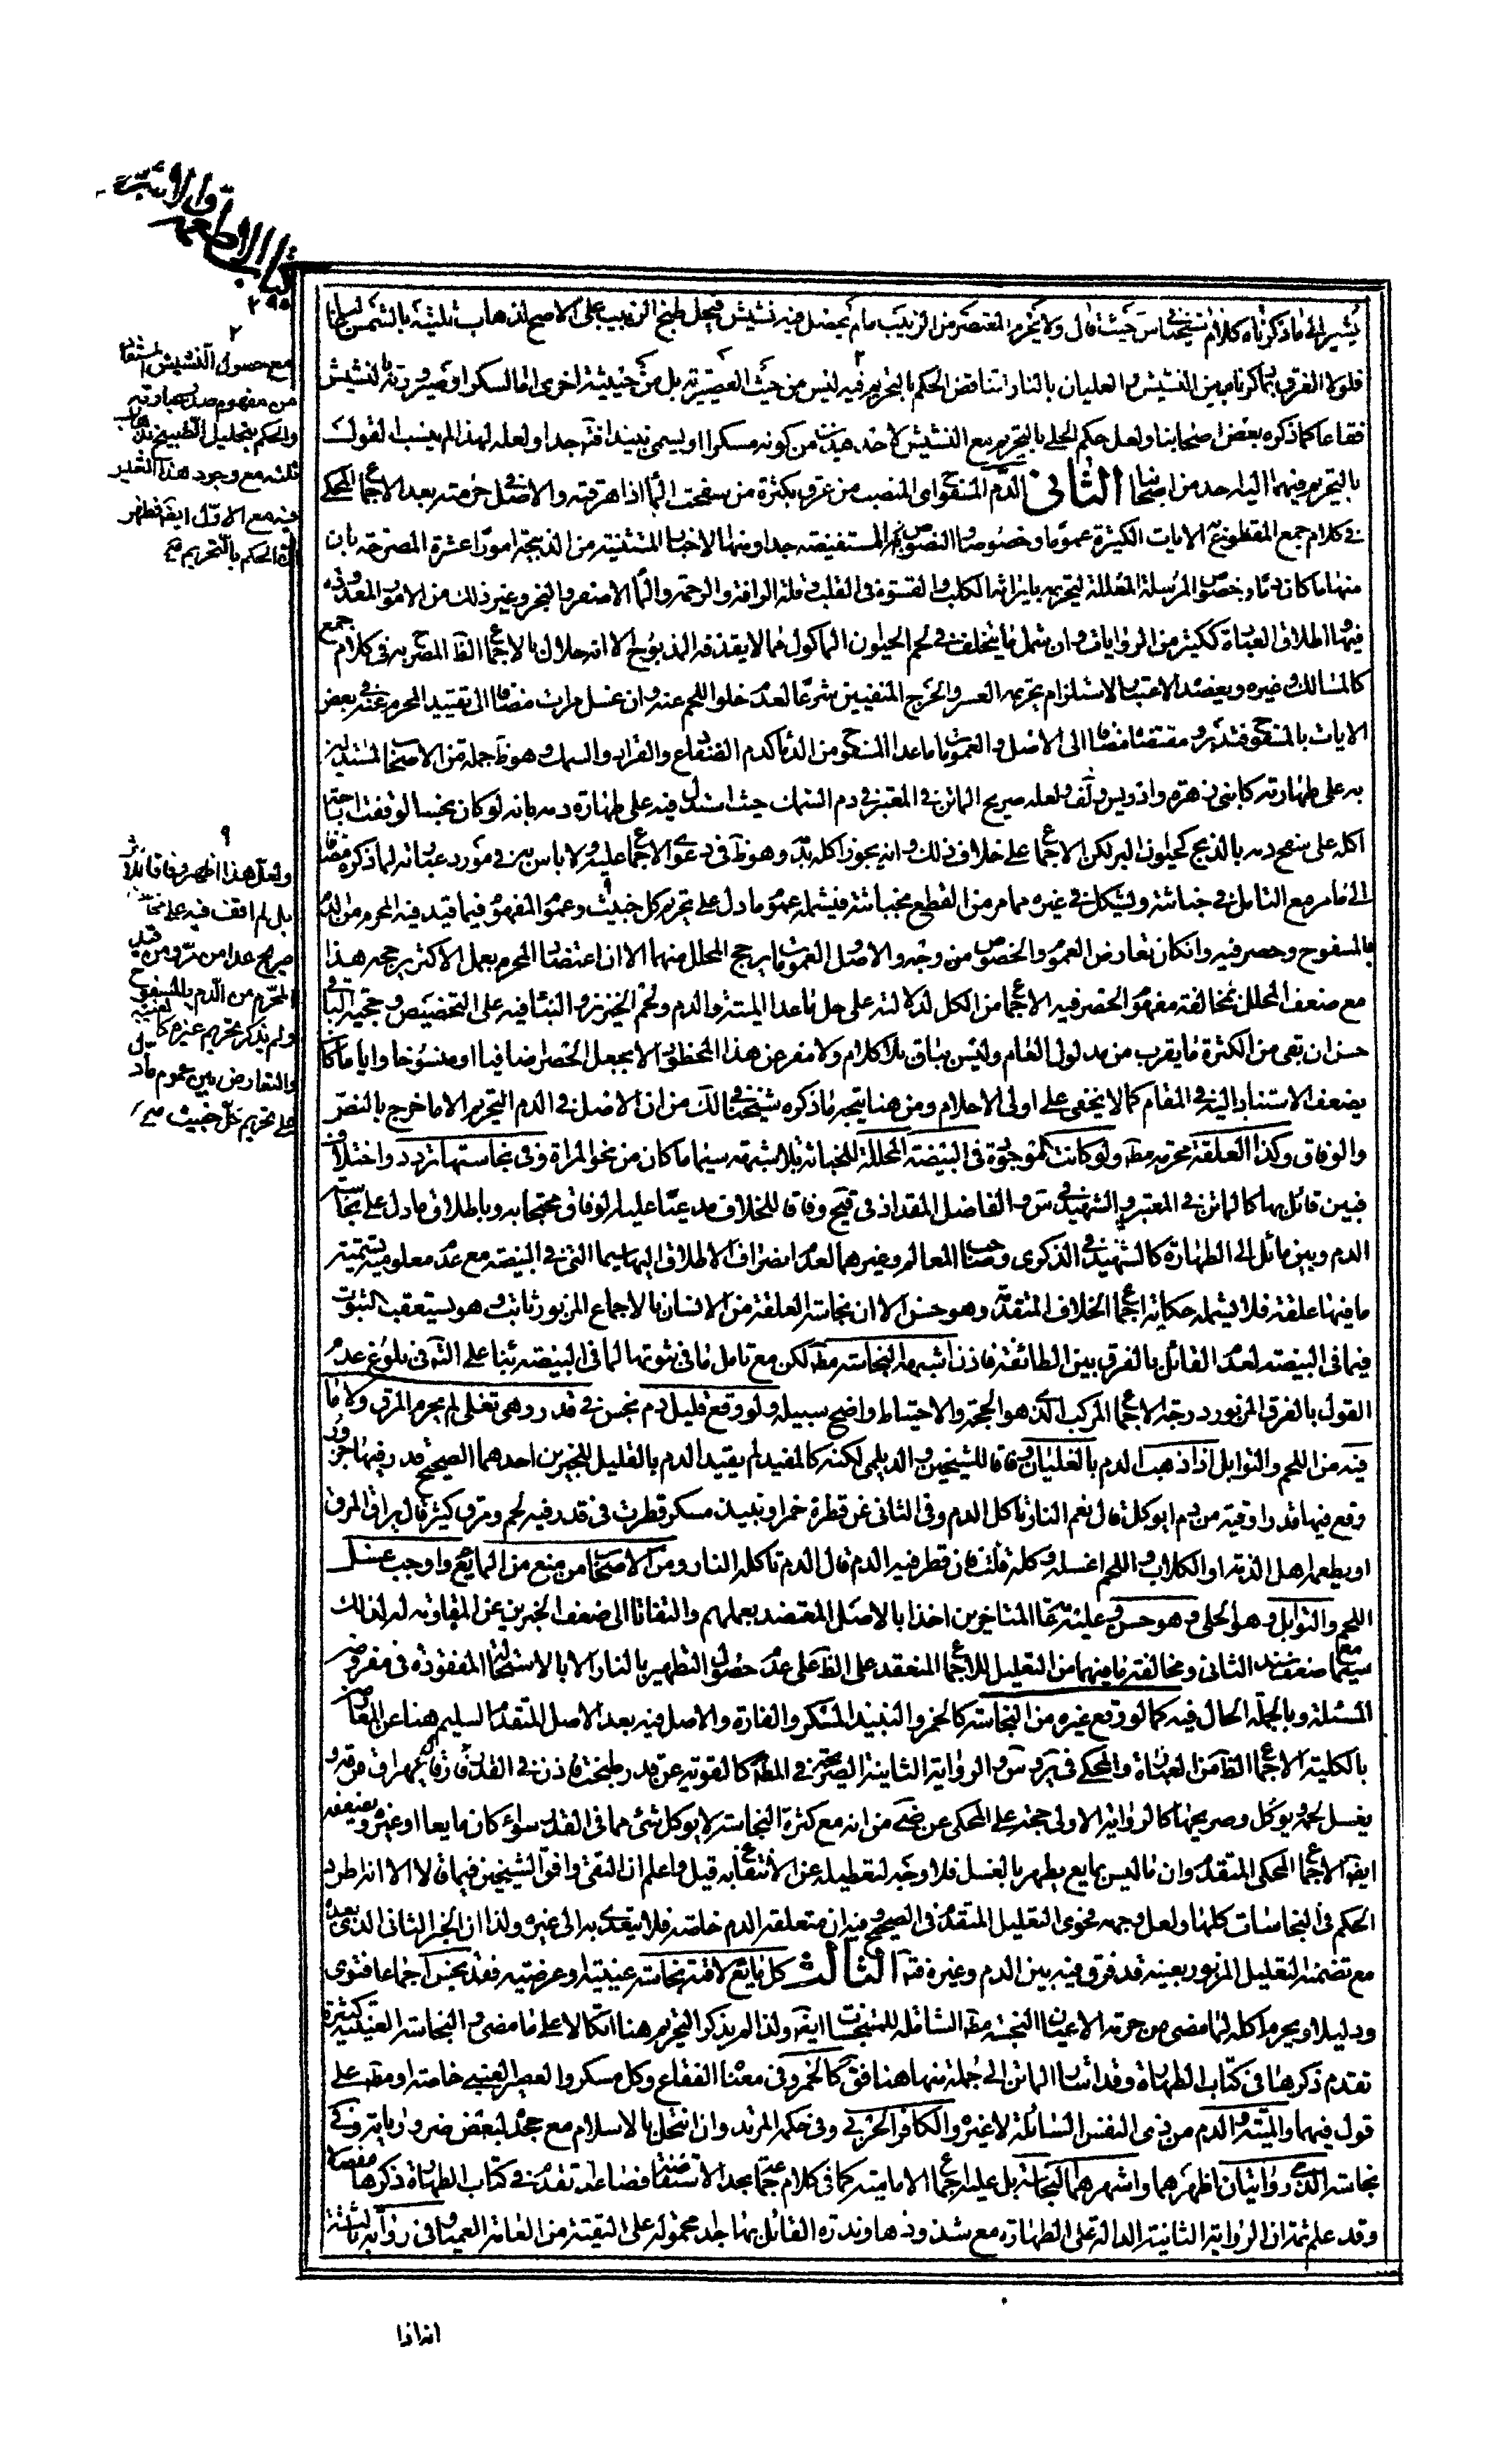 كتاب الاطعمة والاشربة
٢٩٥
يشير الى ما ذكرناه كلام شيخنا في س حيث قال ولا يحرم المعتصر من الزبيب ما لم يحصل فيه نشيش فيحل طبخ الزبيب على الاصح لذهاب ثلثيه بالشمس
فلولا الفرق بما ذكرناه بين النشيش والغليان بالنار لتناقض الحكم بالتحريم فيه ليس من حيث العصيرية بل من حيثية اخرى اما السكر او صيرورته بالنشيش
فقاعا كما ذكره بعض اصحابنا ولعل حكم الحلي بالتحريم مع النشيش لاحد هذين من كونه مسكرا او يسمى نبيذا فته جدا ولعله لهذا لم ينسب القول
بالتحريم فيهما اليه احد من اصحابنا الثاني الدم المسفوح اى المنصب من عرق بكثرة من سفحت الماء اذا اهرقته والاصل في حرمته بعد الاجماع المحكي
في كلام جمع المقطوع به الايات الكثيرة عموما وخصوصا والنصوص المستفيضة جدا ومنها الاخبار المستثنية من الذبيحة امورا عشرة المصرحة بان
منها ما كان دما وخصوص المرسلة المعللة لتحريمه بايراثه الكلب والقسوة في القلب وقلة الرافة والرحمة والماء الاصفر والبخر وغير ذلك من الامور المعدودة
فيها واطلاق العبارة ككثير من الروايات وان شمل ما يتخلف في لحم الحيوان الماكول مما لا يقذفه المذبوح الا انه حلال بالاجماع الظ المصرح به في كلام جمع
كالمسالك وغيره ويعضده الاعتبار لاستلزام تحريمه العسر والحرج المنفيين شرعا لعدم خلو اللحم عنه وان غسل مرات مضافا الى تقييد المحرم عنه في بعض
الايات بالمسفوح فتدبر ومقتضاه مضافا الى الاصل والعمومات ما عدا المسفوح من الدماء كدم الضفادع والقراد والسمك وهو ظ جملة من الاصحاب المستدلين
به على طهارته كابني زهرة وادريس ولف ولعله صريح الماتن في المعتبر في دم السمك حيث استدل فيه على طهارة دمه بانه لو كان نجسا لوقفت اباحة
اكله على سفح دمه بالذبح كحيوان البر لكن الاجماع على خلاف ذلك وانه يجوز اكله بدمه وهو ظ في دعوى الاجماع عليه ولا باس به في مورد عبارته لما ذكره مضافا
الى ما مر مع التامل في خباثته ويشكل في غيره مما مر من القطع بخباثته فيشمله عموم ما دل على تحريم كل خبيث وعموم المفهوم فيما قيد فيه المحرم من الدم
بالمسفوح وحصر فيه وان كان تعارض العموم والخصوص من وجه والاصل والعمومات يرجح المحلل منهما الا ان اعتضاد المحرم بعمل الاكثر يرجحه هذا
مع ضعف المحلل بمخالفة مفهوم الحصر فيه الاجماع من الكل لدلالته على حل ما عدا الميتة والدم ولحم الخنزير والبناء فيه على التخصيص وحجيته في الباقي
حسن ان بقي من الكثرة ما يقرب من مدلول العام وليس بباق بلا كلام ولا مفر عن هذا المحظور الا بجعل الحصر اضافيا او منسوخا وايا ما كان
يضعف الاستناد اليه في المقام كما لا يخفى على اولى الاحلام ومن هنا يتجه ما ذكره شيخنا في لك من ان الاصل في الدم التحريم الا ما خرج بالنص
والوفاق وكذا العلقة محرمة مط ولو كانت الموجودة في البيضة المحللة للخباثة بلا شبهة سيما ما كان من نحو المراة وفي نجاستها تردد واختلاف
فبين قائل بها كالماتن في المعتبر والشهيد في س والفاضل المقداد في قيح وفاقا للخلاف مدعيا عليه الوفاق محتجا به وباطلاق ما دل على نجاسة
الدم وبين مائل الى الطهارة كالشهيد في الذكرى وصاحب المعالم وغيرهما لعدم انصراف الاطلاق اليها سيما التي في البيضة مع عدم معلومية تسمية
ما فيها علقة فلا يشمله حكاية اجماع الخلاف المتقدمة وهو حسن الا ان نجاسة العلقة من الانسان بالاجماع المزبور ثابت وهو يستعقب الثبوت
فيما في البيضة لعدم القائل بالفرق بين الطائفة فاذن اشبهه النجاسة مط لكن مع تامل ما في ثبوتها لما في البيضة بناء على التامل في بلوغ عدم
القول بالفرق المزبور درجة الاجماع المركب الذى هو الحجة والاحتياط واضح سبيله ولو وقع قليل دم نجس في قدر وهي تغلي لم يحرم المرق ولا ما
فيه من اللحم والتوابل اذا ذهب الدم بالغليان وفاقا للشيخين والديلمي لكنه كالمفيد لم يقيد الدم بالقليل للخبرين احدهما الصحيح قدر فيها جزور
وقع فيها قدر اوقية من دم ايوكل قال نعم النار تاكل الدم وفي الثاني عن قطرة خمر او نبيذ مسكر قطرت في قدر فيه لحم ومرق كثير قال يهراق المرق
او يطعمه اهل الذمة او الكلاب واللحم اغسله وكله قلت فان قطر فيه الدم قال الدم تاكله النار ومن الاصحاب من منع من المايع واوجب غسل
اللحم والتوابل وهو الحلي وهو حسن وعليه عامة المتاخرين اخذا بالاصل المعتضد بعملهم والتفاتا الى ضعف الخبرين عن المقاومة له لذلك
سيما مع ضعف سند الثاني ومخالفة ما فيهما من التعليل للاجماع المنعقد على الظ على عدم حصول التطهير بالنار الا بالاستحالة المفقودة في مفروض
المسئلة وبالجملة الحال فيه كما لو وقع غيره من النجاسة كالخمر والنبيذ المسكر والفارة والاصل فيه بعد الاصل المتقدم السليم هنا عن المعارض
بالكلية الاجماع الظ من العبارة والمحكي في ير وس والرواية الثانية الصريحة في المط كالقوية عن قدر طبخت فاذن في القدر فارة قال يهراق مرقه و
يغسل لحمه ويوكل وصريحها كالرواية الاولى حجة على المحكي عن ضي من انه مع كثرة النجاسة لا يوكل شئ مما في القدر سواء كان مايعا او غيره ويضعفه
ايضا الاجماع المحكي المتقدم وان ما ليس بمايع يطهر بالغسل فلا وجه لتعطيله عن الانتفاع به قيل واعلم ان التقي وافق الشيخين فيما قالا الا انه اطرد
الحكم في النجاسات كلها ولعل وجهه فحوى التعليل المتقدم في الصحيح وفيه ان متعلقه الدم خاصة فلا يتعدى به الى غيره ولذا ان الخبر الثاني الذى بعده
مع تضمنه التعليل المزبور بعينه قد فرق فيه بين الدم وغيره فته الثالث كل مايع لاقته نجاسة عينية او عرضية فقد نجس اجماعا فتوى
ودليلا ويحرم اكله لما مضى من حرمة الاعيان النجسة مط الشاملة للمتنجسات ايضا ولذا لم يذكر التحريم هنا اتكالا على ما مضى والنجاسة العينية كثيرة
تقدم ذكرها في كتاب الطهارة وقد اشار الماتن الى جملة منها هنا فق كالخمر وفي معناها الفقاع وكل مسكر والعصير العنبي خاصة او مط على
قول فيهما والميتة والدم من ذى النفس السائلة لا غيره والكافر الحربي وفي حكمه المرتد وان انتحل بالاسلام مع جحد لبعض ضرورياته وفي
نجاسة الذمي روايتان اظهرهما واشهرهما النجاسة بل عليه اجماع الامامية كما في كلام جماعة بحد الاستفاضة فصاعدا تقدم في كتاب الطهارة ذكرها مفصلة
وقد علم ثمة ان الرواية الثانية الدالة على الطهارة مع شذوذها وندرة القائل بها جدا محمولة على التقية من العامة العمياء وفي رواية ثالثة
٢
مع حصول النشيش المستفاد
من مفهوم صدر عبارته
والحكم بتحليل الطبيخ بذهاب
ثلثه مع وجود هذا القدر
فيه مع الاول ايضا فظهر
ان الحكم بالتحريم
٩
ولعل هذا اظهر وفاقا
بل لم اقف فيه على مخالف
صريح عدا من مر ومن قيد
المحرم من الدم بالمسفوح
ولم يذكر تحريم غيره كالغنية
والتعارض بين عموم ما دل
على تحريم كل خبيث
انه اذا